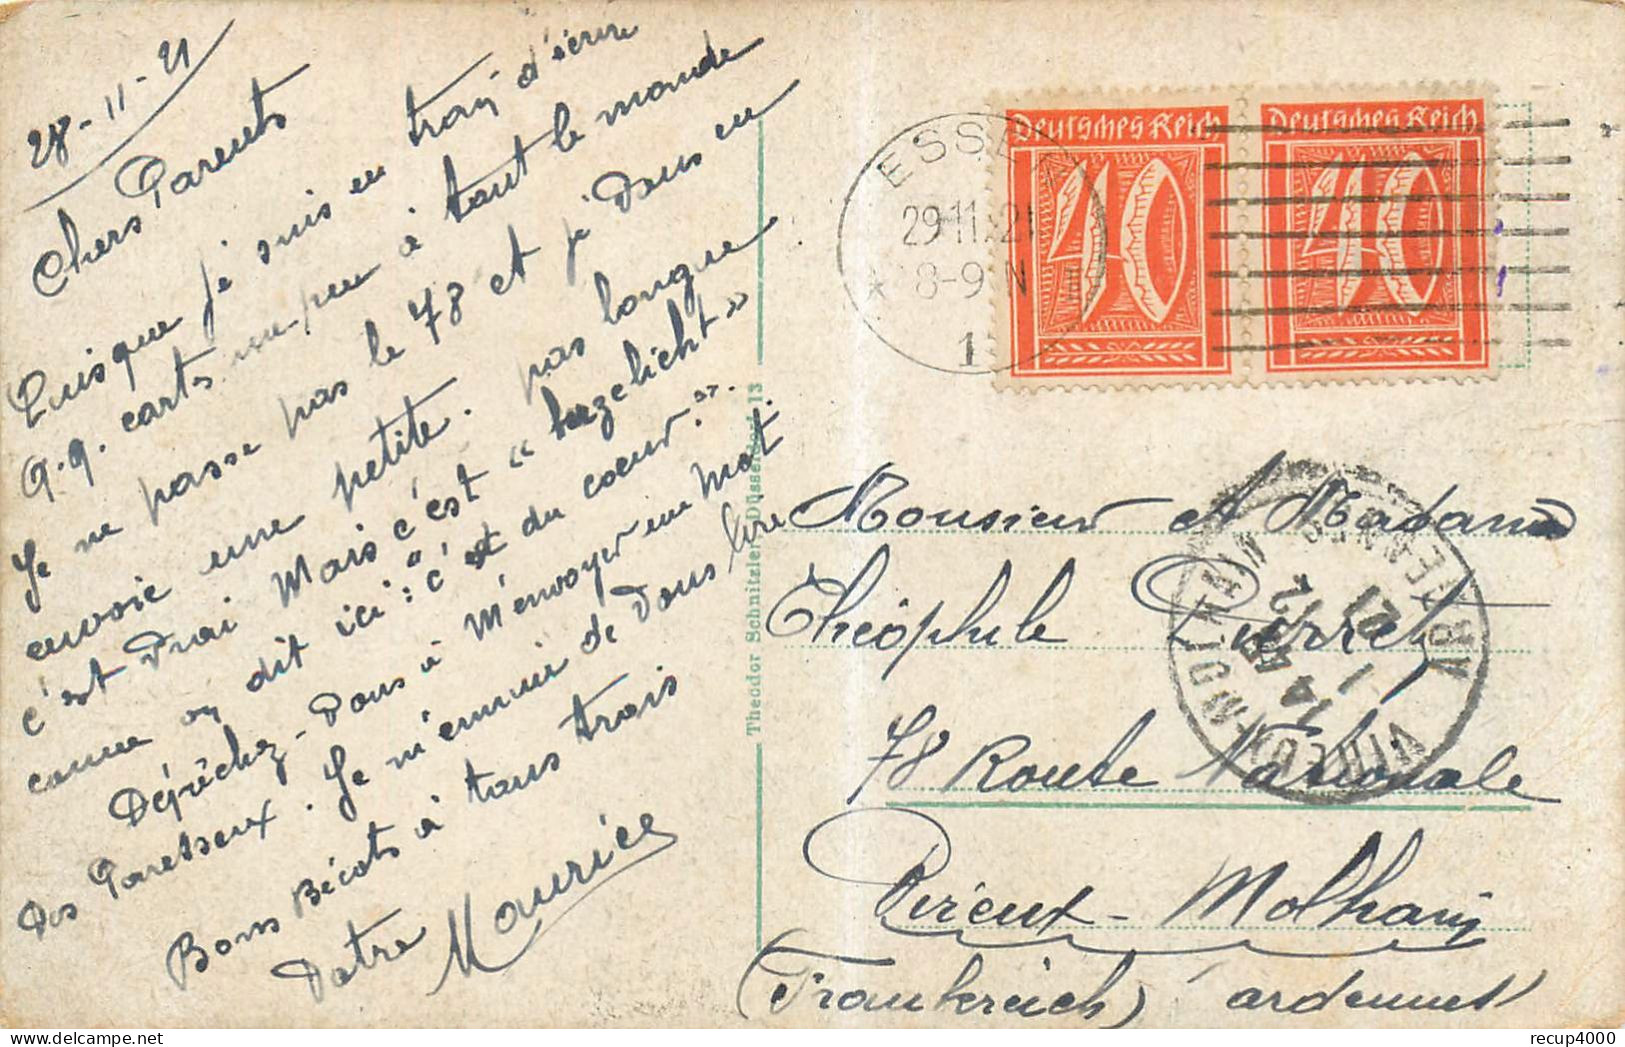 28-11-21
Chers Parents
Puisque je suis en train d'écrire
q.q. cartes un peu à tout le monde
Je ne passe pas le 78 et je vous en
envoie une petite. pas longue
c'est vrai Mais c'est « herzelicht »
comme on dit ici : "c'est du cœur".
Dépêchez-vous à m'envoyer un mot
des Paresseux. Je m'ennuie de vous lire
Bons Bécots à tous trois
Votre Maurice
Theodor Schnitzler, Düsseldorf 13
Deutsches Reich
40
Deutsches Reich
40
ESSEN
29.11.21
8-9 N
1
VIREUX-MOLHAIN
ARDENNES
14
1 12
21
Monsieur et Madame
Théophile Pierret
78 Route Nationale
Vireux-Molhain
(Frankreich) Ardennes
recup4000